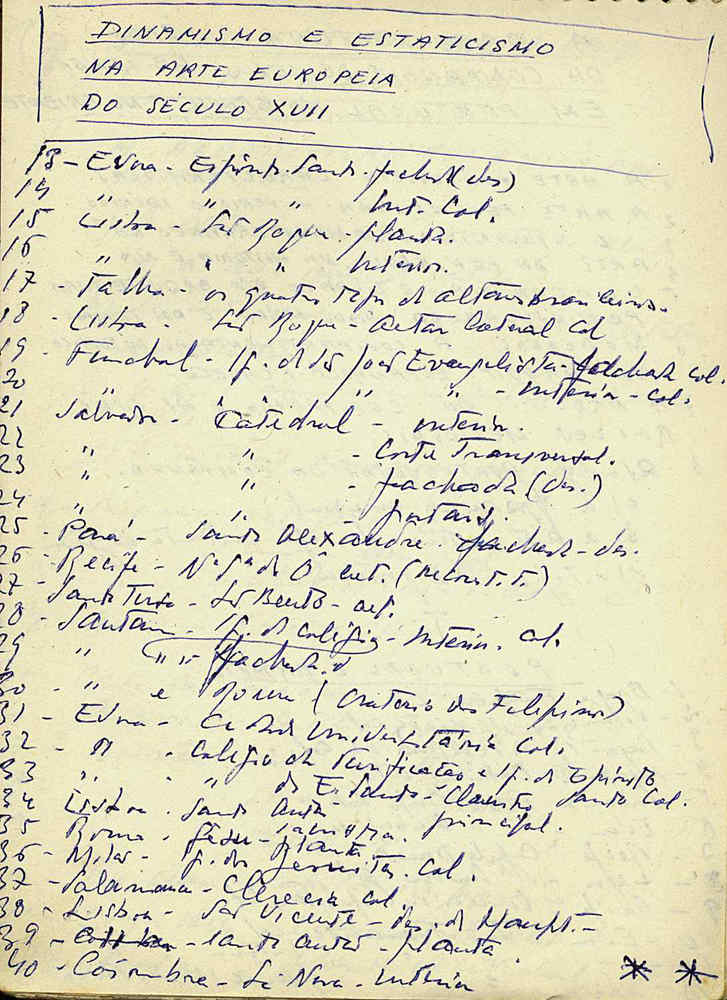 DINAMISMO E ESTATICISMO
NA ARTE EUROPEIA
DO SÉCULO XVII
13 - Evora - Espirito Santo - fachada (des)
14 " " " Int. Col.
15 Lisboa - São Roque - planta.
16 " " " Interior.
17 - Talha - os quatro tipos de altares brasileiros.
18 - Lisboa - São Roque - Altar lateral Col
19 - Funchal - Ig. de São João Evangelista - fachada col.
20 " " " - interior - col.
21 Salvador - Catedral - interior.
22 " " - Corte Transversal.
23 " " - fachada (des.)
24 " " - portais.
25 - Pará - Santo Alexandre - fachada - des.
26 - Recife - Nª Sª do Ó ext. (reconst.)
27 - São Bento -
28 - Santarem - Ig. do Colégio - Interior. Col.
29 " " " - fachada.
30 - " e Roma (Oratorio dos Filipinos)
31 - Evora - Cidade Universitária Col.
32 - " - Colégio da Purificação e Ig. do Espirito
33 " - " do E. Santo - Claustro Santo Col.
34 Lisboa - Santo Antão - principal.
35 Roma - Gesu - planta.
36 - Milão - Ig. dos Jesuitas. Col.
37 - Salamanca - Clerecia Col.
38 - Lisboa - São Vicente - des. de
39 - - Santo Antão - planta
40 - Coimbra - Sé Nova - interior
* *